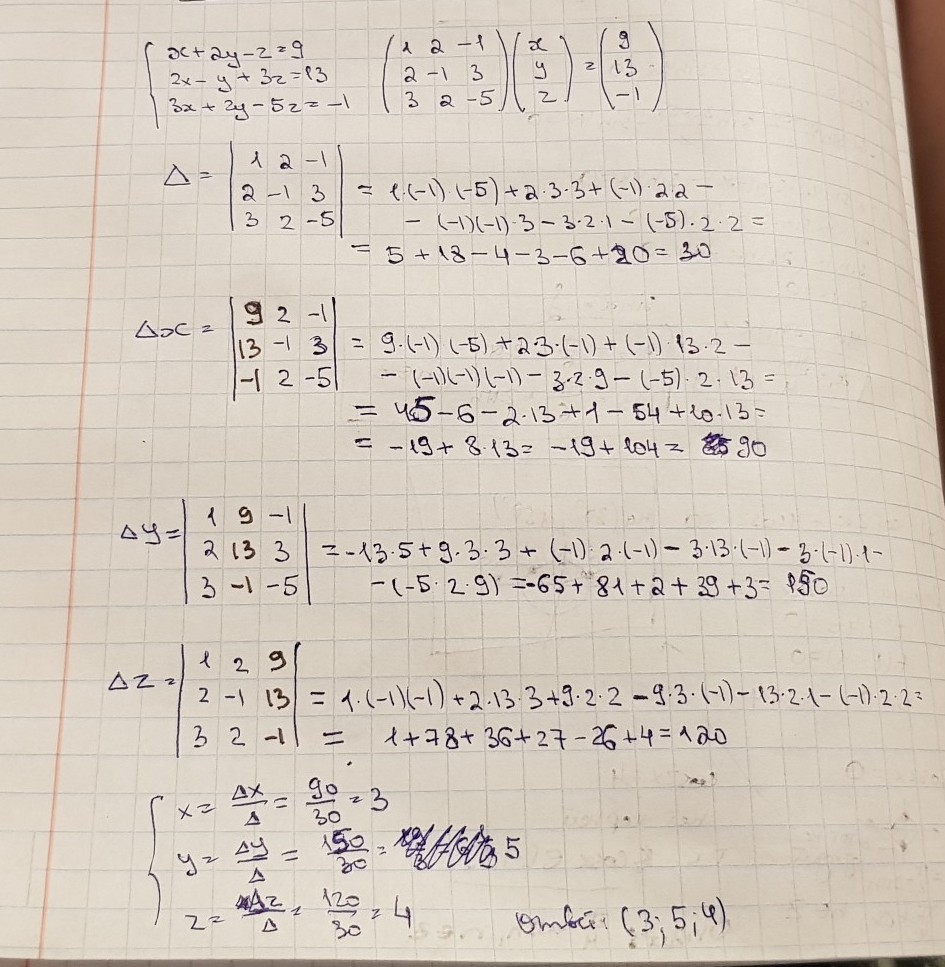 x+2y-z=9
2x-y+3z=13
3x+2y-5z=-1
(1 2 -1) (x) = (9)
(2 -1 3) (y) (13)
(3 2 -5) (z) (-1)
Δ = |1 2 -1|
|2 -1 3| = 1·(-1)·(-5)+2·3·3+(-1)·2·2-
|3 2 -5| - (-1)(-1)·3-3·2·1-(-5)·2·2=
= 5+18-4-3-6+20=30
Δx = |9 2 -1|
|13 -1 3| = 9·(-1)·(-5)+2·3·(-1)+(-1)·13·2-
|-1 2 -5| - (-1)(-1)(-1)-3·2·9-(-5)·2·13=
= 45-6-2·13+1-54+10·13=
= -19+8·13= -19+104= 90
Δy= |1 9 -1|
|2 13 3| =-13·5+9·3·3+(-1)·2·(-1)-3·13·(-1)-3·(-1)·1-
|3 -1 -5| -(-5·2·9)=-65+81+2+39+3= 150
Δz= |1 2 9|
|2 -1 13| = 1·(-1)(-1)+2·13·3+9·2·2-9·3·(-1)-13·2·1-(-1)·2·2=
|3 2 -1| = 1+78+36+27-26+4=120
x= Δx/Δ = 90/30 = 3
y= Δy/Δ = 150/30 = 5
z= Δz/Δ = 120/30 = 4
ответ: (3; 5; 4)